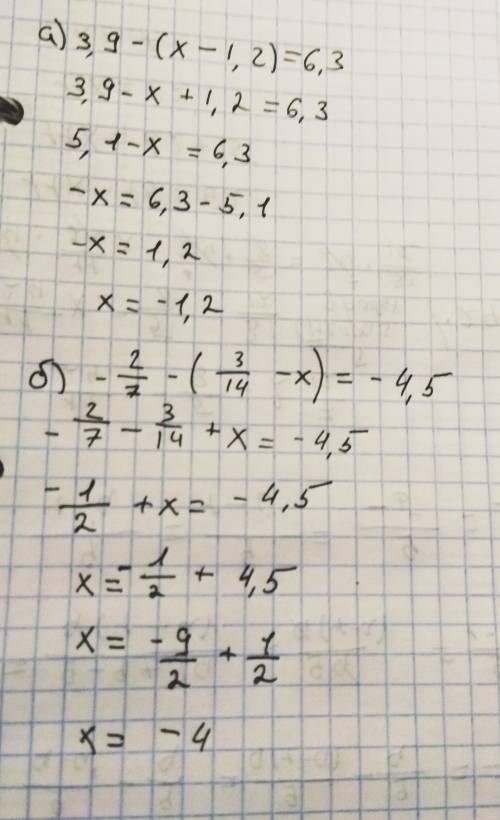 а) 3,9 - (x - 1,2) = 6,3
3,9 - x + 1,2 = 6,3
5,1 - x = 6,3
-x = 6,3 - 5,1
-x = 1,2
x = -1,2
б) - 2/7 - (3/14 - x) = - 4,5
- 2/7 - 3/14 + x = - 4,5
- 1/2 + x = - 4,5
x = - 1/2 + 4,5
x = -9/2 + 1/2
x = - 4